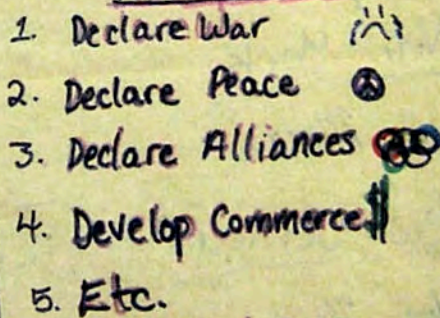 1. Declare War
2. Declare Peace
3. Declare Alliances
4. Develop Commerce $
5. Etc.